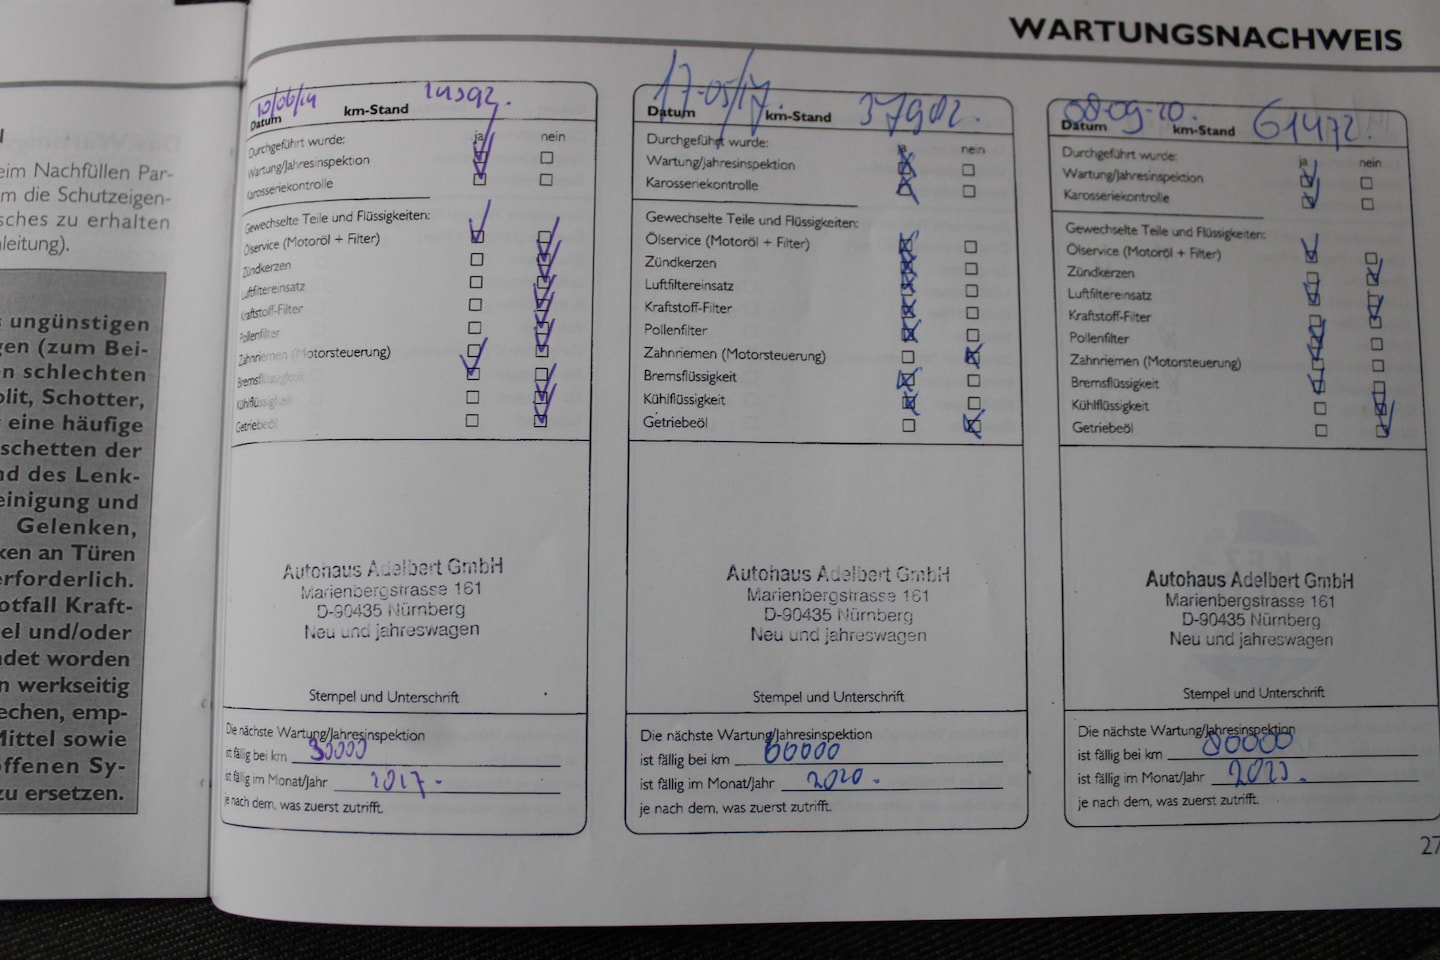 WARTUNGSNACHWEIS
eim Nachfüllen Par-
m die Schutzeigen-
sches zu erhalten
leitung).
ungünstigen
gen (zum Bei-
n schlechten
olit, Schotter,
eine häufige
schetten der
nd des Lenk-
einigung und
Gelenken,
ken an Türen
erforderlich.
otfall Kraft-
el und/oder
ndet worden
n werkseitig
echen, emp-
Mittel sowie
offenen Sy-
zu ersetzen.
10/06/14
Datum km-Stand
Durchgeführt wurde: ja nein
Wartung/Jahresinspektion
Karosseriekontrolle
Gewechselte Teile und Flüssigkeiten:
Ölservice (Motoröl + Filter)
Zündkerzen
Luftfiltereinsatz
Kraftstoff-Filter
Pollenfilter
Zahnriemen (Motorsteuerung)
Bremsflüssigkeit
Kühlflüssigkeit
Getriebeöl
Autohaus Adelbert GmbH
Marienbergstrasse 161
D-90435 Nürnberg
Neu und jahreswagen
Stempel und Unterschrift
Die nächste Wartung/Jahresinspektion
ist fällig bei km 30000
ist fällig im Monat/Jahr 2017.
je nach dem, was zuerst zutrifft.
17-05/17. 37902.
Datum km-Stand
Durchgeführt wurde: ja nein
Wartung/Jahresinspektion
Karosseriekontrolle
Gewechselte Teile und Flüssigkeiten:
Ölservice (Motoröl + Filter)
Zündkerzen
Luftfiltereinsatz
Kraftstoff-Filter
Pollenfilter
Zahnriemen (Motorsteuerung)
Bremsflüssigkeit
Kühlflüssigkeit
Getriebeöl
Autohaus Adelbert GmbH
Marienbergstrasse 161
D-90435 Nürnberg
Neu und jahreswagen
Stempel und Unterschrift
Die nächste Wartung/Jahresinspektion
ist fällig bei km 60000
ist fällig im Monat/Jahr 2020.
je nach dem, was zuerst zutrifft.
08-09-20. 61472.
Datum km-Stand
Durchgeführt wurde: ja nein
Wartung/Jahresinspektion
Karosseriekontrolle
Gewechselte Teile und Flüssigkeiten:
Ölservice (Motoröl + Filter)
Zündkerzen
Luftfiltereinsatz
Kraftstoff-Filter
Pollenfilter
Zahnriemen (Motorsteuerung)
Bremsflüssigkeit
Kühlflüssigkeit
Getriebeöl
Autohaus Adelbert GmbH
Marienbergstrasse 161
D-90435 Nürnberg
Neu und jahreswagen
Stempel und Unterschrift
Die nächste Wartung/Jahresinspektion
ist fällig bei km
ist fällig im Monat/Jahr
je nach dem, was zuerst zutrifft.
27